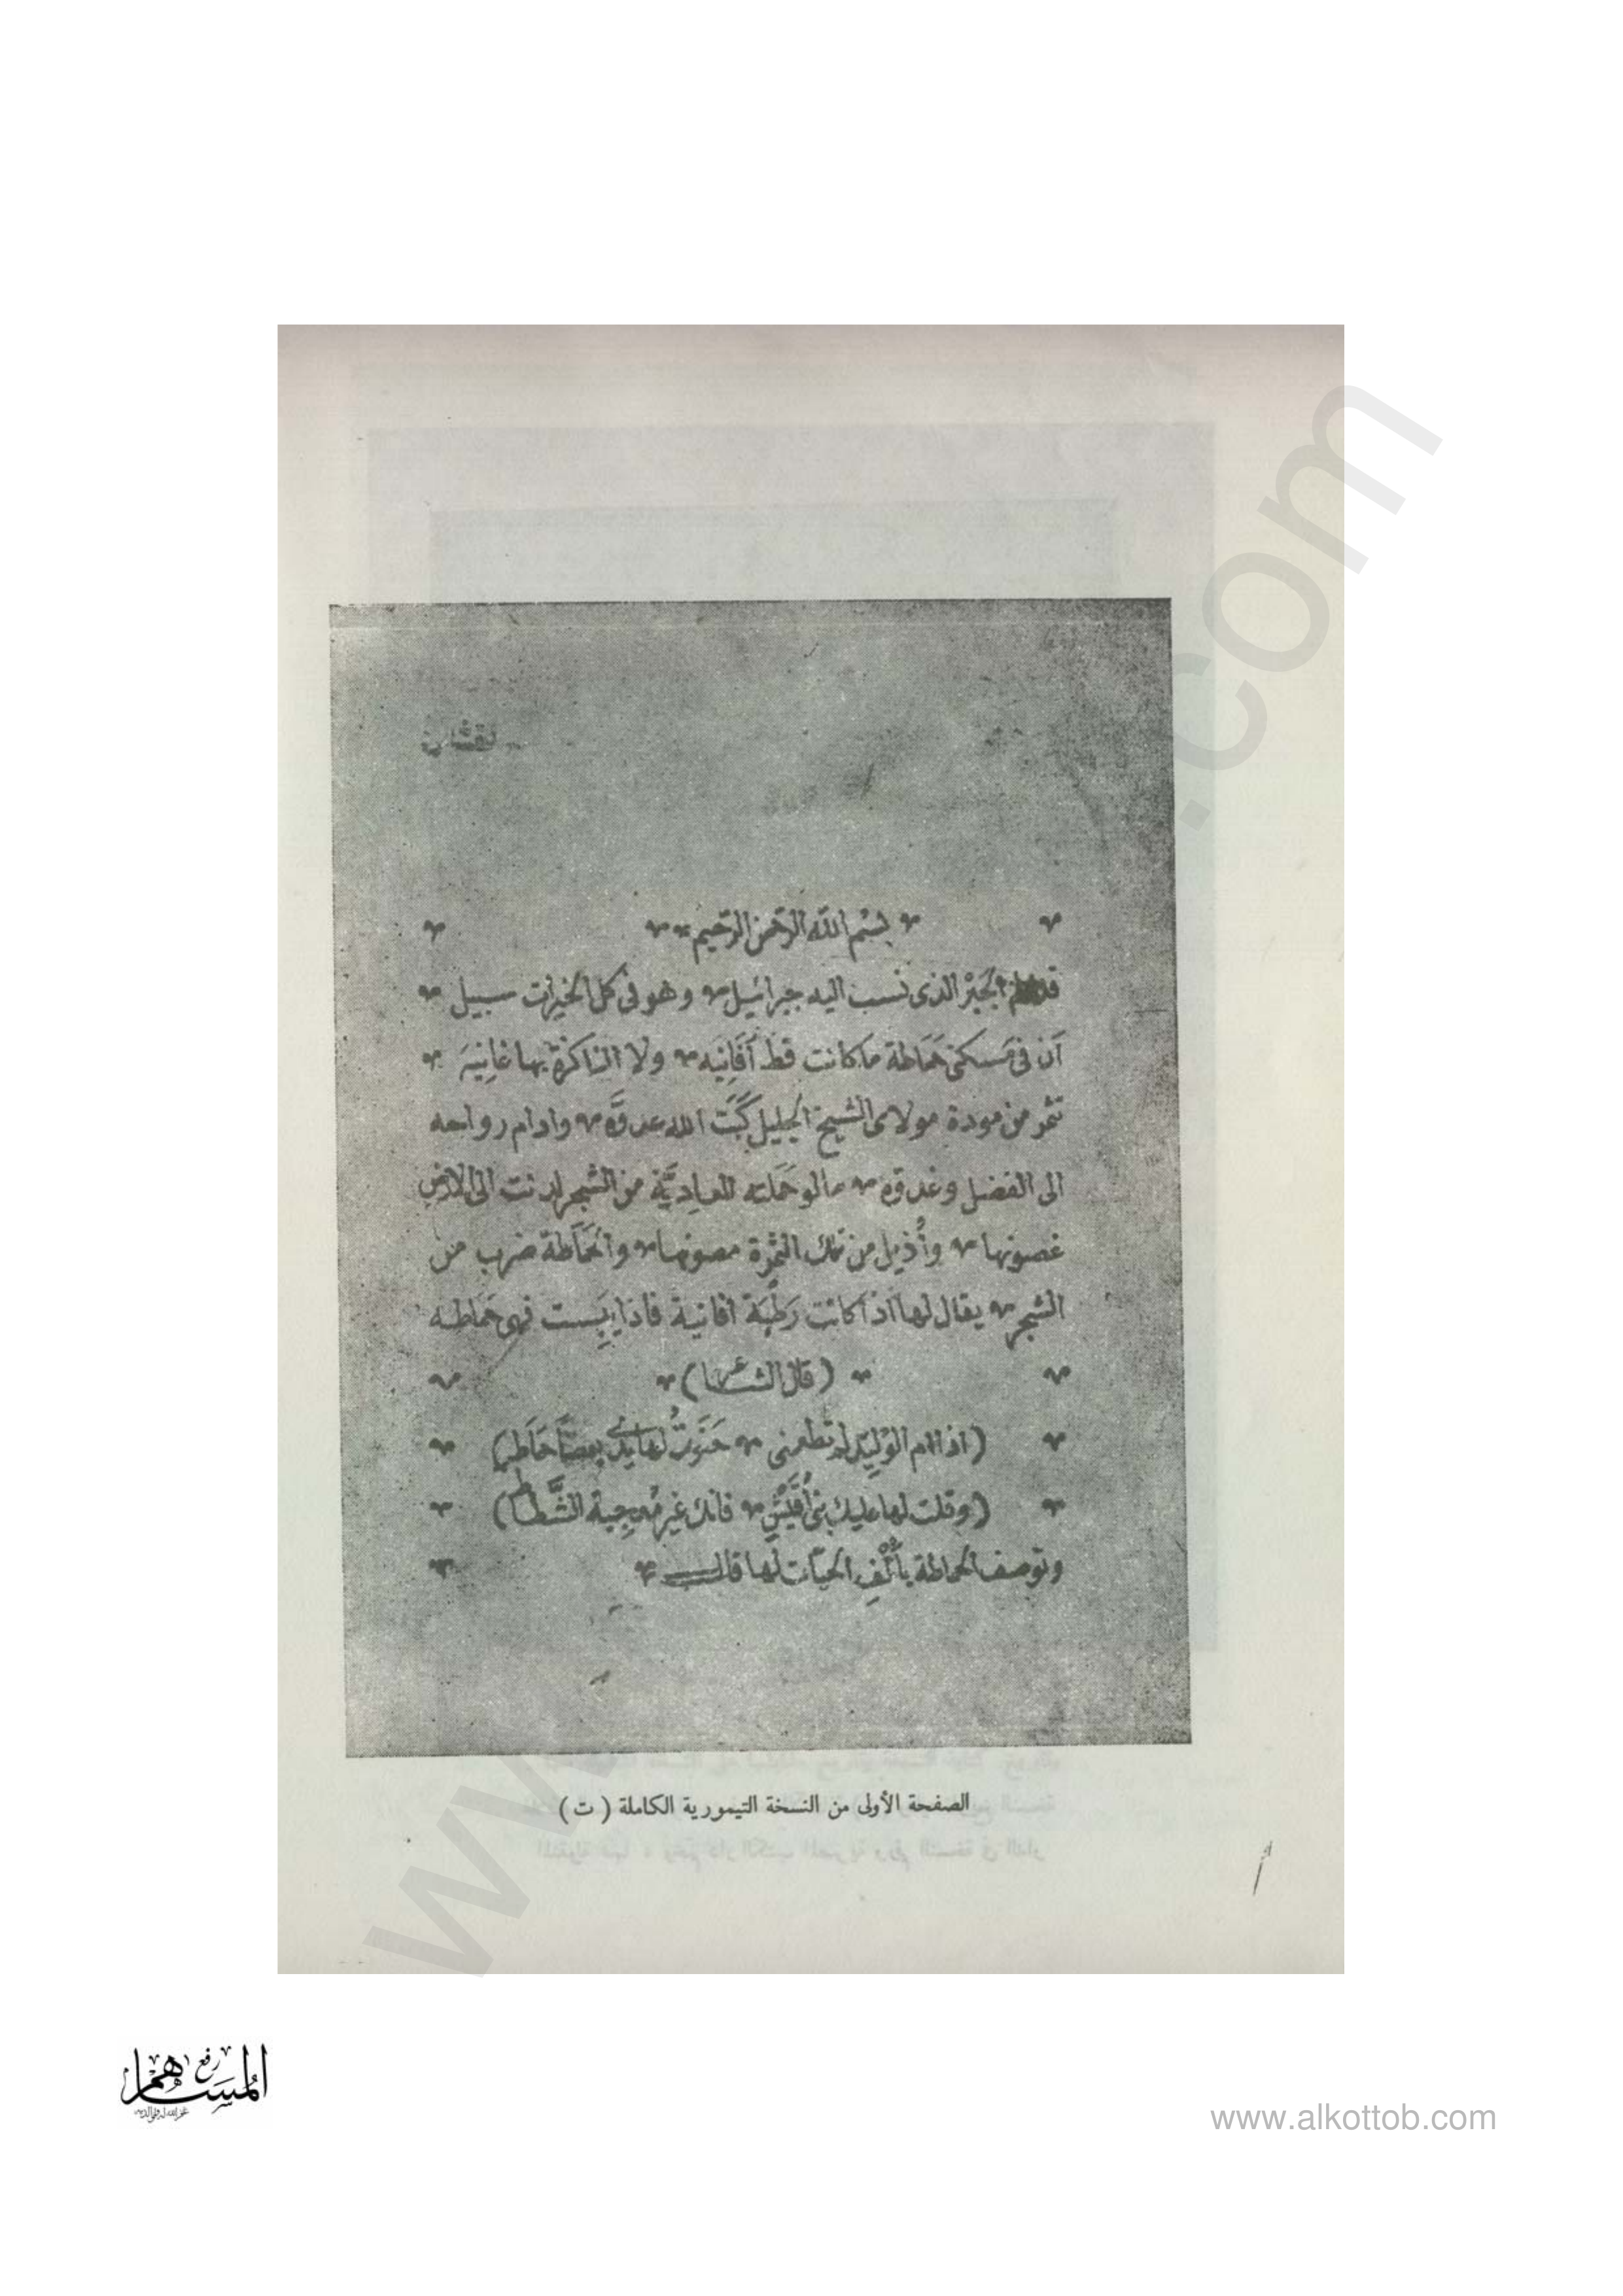 بسْم اللّه الرّحمن الرّحيم
الحَبْر الذى نسب اليه جبرائيل وهو فى كل الخيرات سبيل
أن فى مسكنى حَمَاطة ما كانت قط أفَانِيَه ولا الناكزة بها غانِيَه
تثمر من مودة مولاى الشيخ الجليل كَبَتَ الله عدوَّه وادام رواحه
الى الفضل وغدوّه مالو حَمَلته العادِيَّة من الشجر لدنت الى الارض
غصونها وأُذيل من تلك الثمرة مصونها والحَمَاطة ضرب من
الشجر يقال لها اذا كانت رَطْبَة افانية فاذا يبِست فهى حَمَاطه
(قال الشاعر)
(اذا ام الوُلَيِّد لم تطعنى حَنَوتُ لها يدى بعصَا حَمَاطِ)
(وقلت لها عليك بنى أُقَيْشٍ فانك غير مُعجِبة الشَّطَاط)
وتوصف الحماطة بأُلْفِ الحيّات لها قال
الصفحة الأولى من النسخة التيمورية الكاملة ( ت )
المساهم
رفع
www.alkottob.com
www
.com